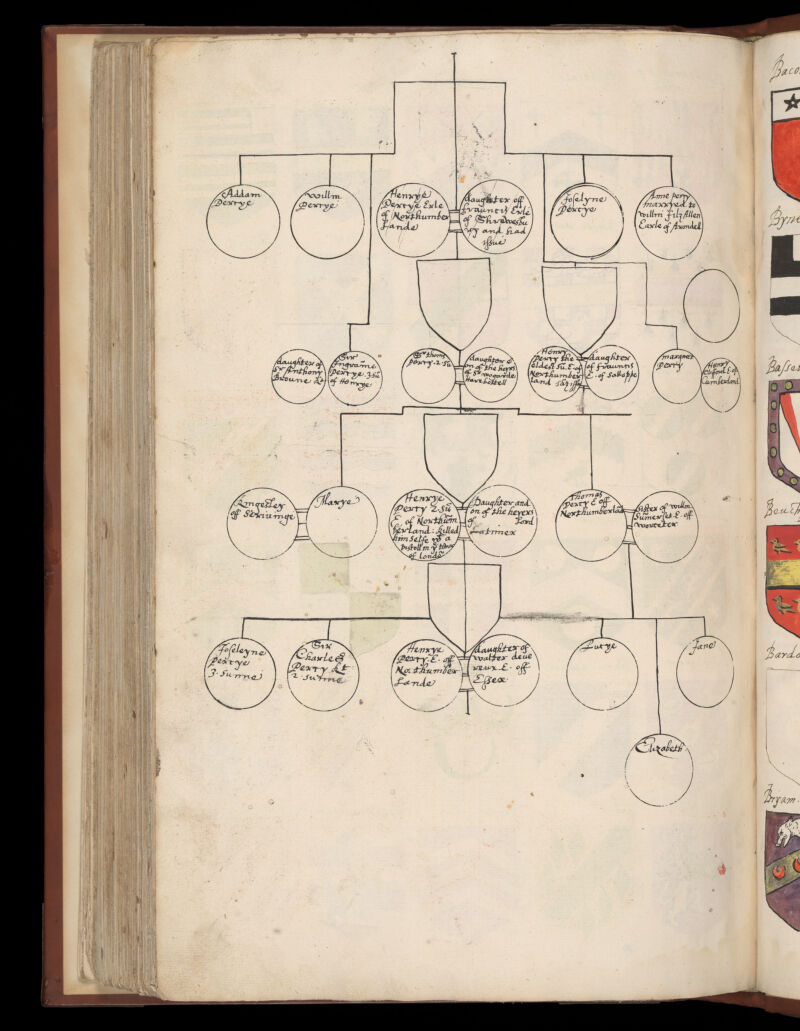 Addam
Percye
Willm
Percye
Henrye
Percye Erle
of Northumber
Lande
daughter off
Frauncis Erle
of Shrewesbu
ry and had
issue
Joselyne
Percye
Anne percy
marryed to
Willm Fitz Allen
Earle of Arundel
daughter of
Sr Anthony
Browne kt
Sir
Ingrame
Percye 3 su
of Henrye
Sr thom
percy 2 su
daughter &
on of the heyrs
of Sr
Harebotell
Henry
Percy the
eldest su E of
Northumber
Land
daughter
of Frauncis
E. of
margret
Percy
Henry
Cliford E of
Cumberland
of
Marye
Henrye
Percy 2 su
E of Northum
berland: killed
himselfe wth a
pistoll in ye towr
of London
Daughter and
on of the heyers
of Lord
Latimer
Thomas
Percy E off
Northumberla
sister of willm
Sumerset E. off
worcetor
Joseleyne
Percye
3. sunne
Sir
Charles
Percy kt
2 sunne
Henrye
Percy E. off
Northumber
Lande
daughter of
Walter deve
reux E. off
Essex
Lucye
Jane
Elizabeth
Baco
Byne
Basse
Beuch
Bardo
Bryam